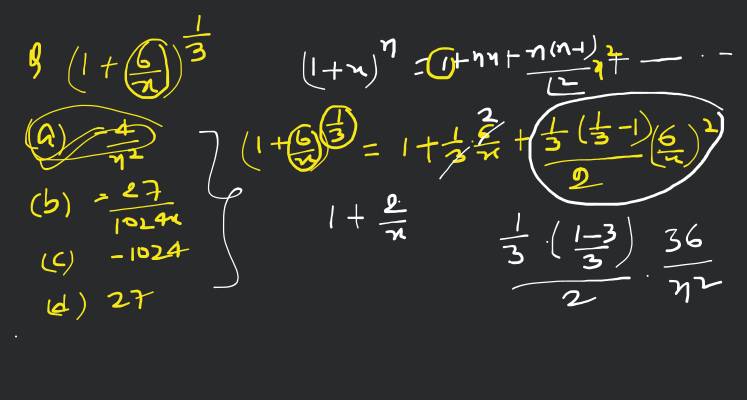 Q (1 + 6/x)^(1/3)
(a) -4/x²
(b) = 27/1024x
(c) -1024
(d) 27
(1+x)^n = 1 + nx + n(n-1)/⌊2 x² + — - -
(1 + 6/x)^(1/3) = 1 + 1/3 · 6/x + 1/3 (1/3 - 1)/2 (6/x)²
2
1 + 2/x
1/3 · (1-3/3)/2 · 36/x²